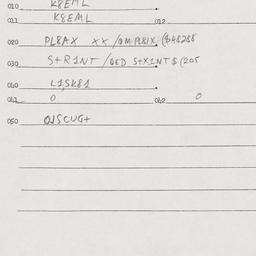 010 K8EML
011 K8EML 012
020 PL8AX xx/OMPL8IX ($48258
030 S+R1NT/OED S+X1NT$(205
040 L1SK81
041 0 042 0
050 O1SCUG+